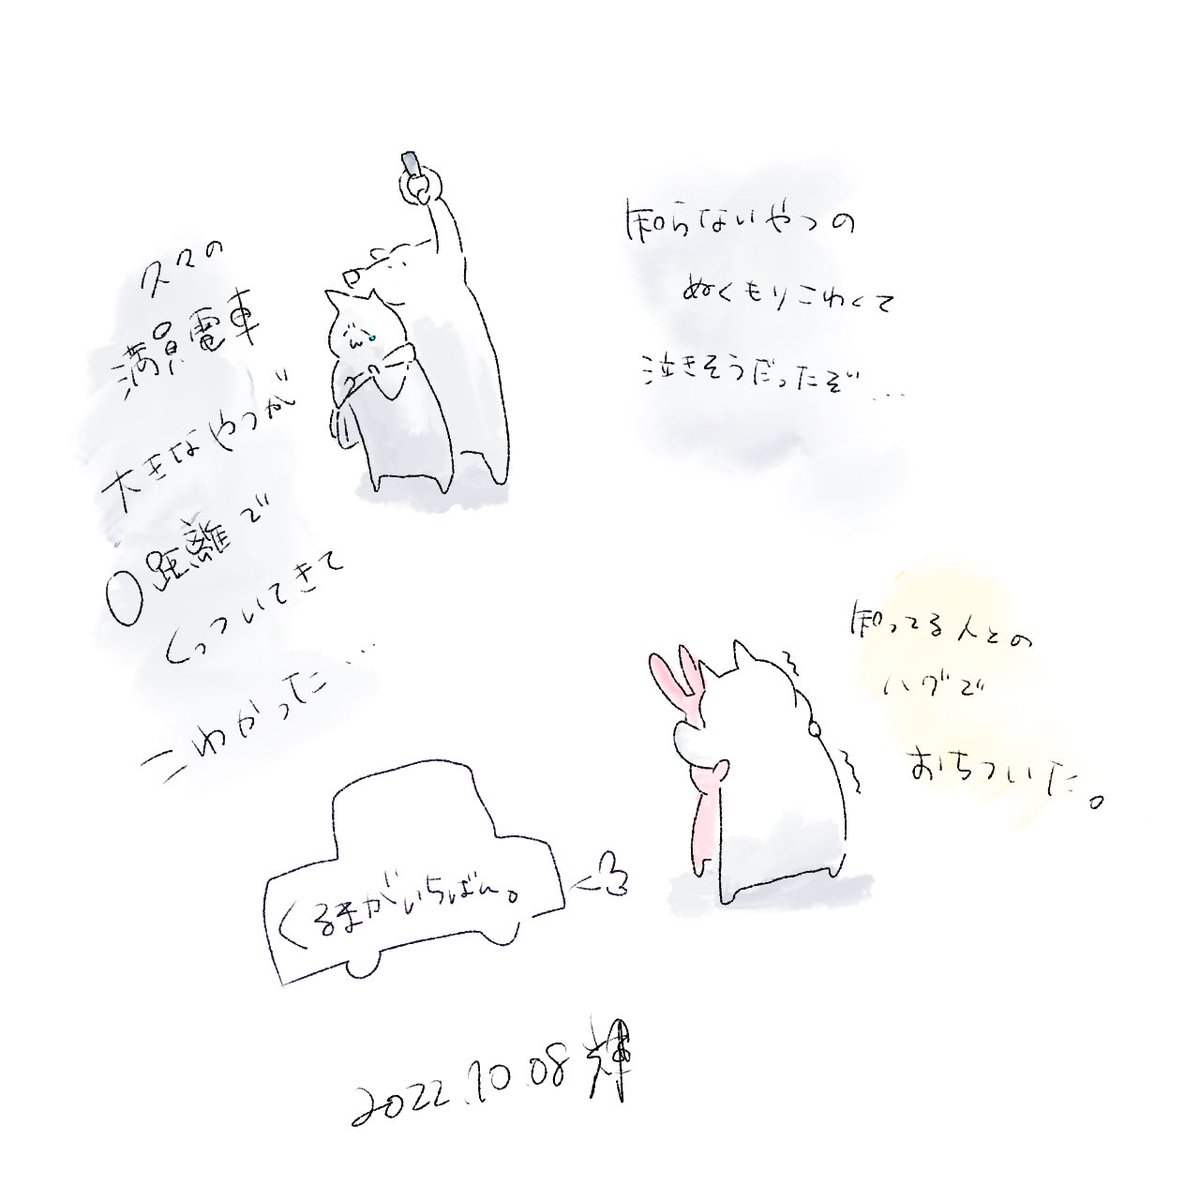 久々の
満員電車
大きなやつが
0距離で
くっついてきて
こわかった…
知らないやつの
ぬくもりこわくて
泣きそうだったぞ…
知ってる人との
ハグで
おちついた。
くるまがいちばん。
2022.10.08 輝